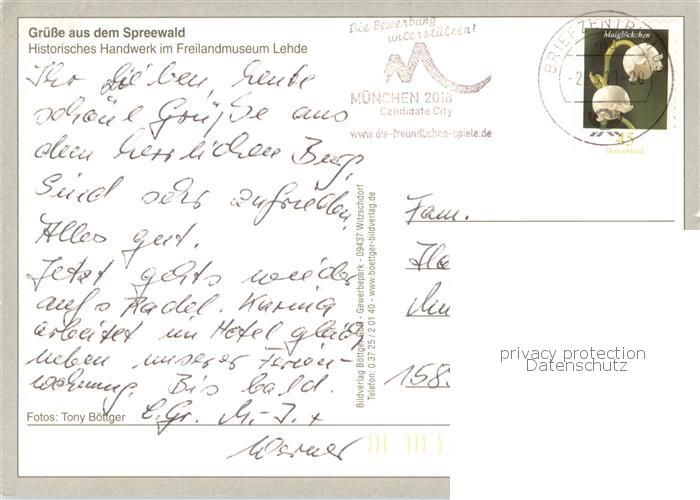 Grüße aus dem Spreewald
Historisches Handwerk im Freilandmuseum Lehde
Ihr Lieben, heute
schöne Grüße aus
dem herrlichen Burg.
Sind sehr zufrieden,
Alles gut.
Jetzt gehts wieder
aufs Radel. Karina
arbeitet im Hotel gleich
neben unserer Ferien-
wohnung. Bis bald.
L. Gr. M.-J. +
Werner
Fotos: Tony Böttger
Bildverlag Böttger GbR - Gewerbepark - 09437 Witzschdorf
Telefon: 0 37 25 / 2 01 40 - www.boettger-bildverlag.de
Die Bewerbung
unterstützen!
MÜNCHEN 2018
Candidate City
www.die-freundlichen-spiele.de
BRIEFZENTRUM
Maiglöckchen
45
Deutschland
Fam.
158
privacy protection
Datenschutz